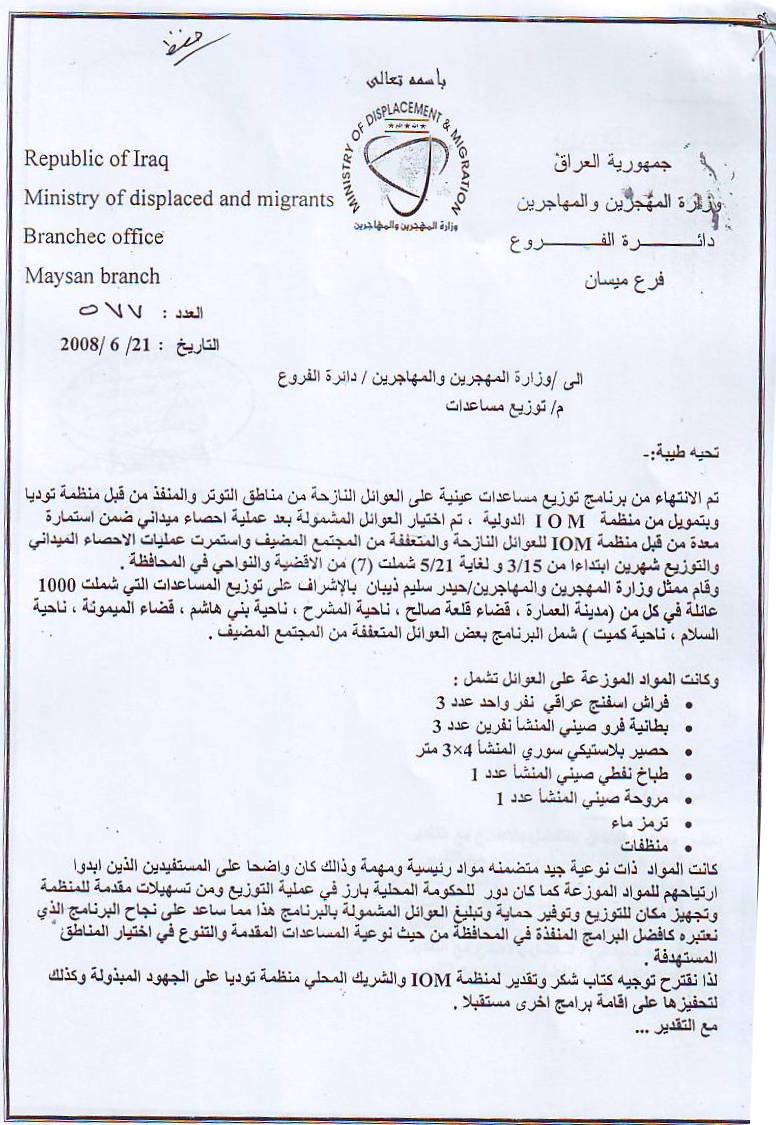 حفظ
باسمه تعالى
MINISTRY OF DISPLACEMENT & MIGRATION
وزارة المهجرين والمهاجرين
Republic of Iraq
Ministry of displaced and migrants
Branchec office
Maysan branch
جمهورية العراق
وزارة المهجرين والمهاجرين
دائـــــرة الفـــــروع
فرع ميسان
العدد : ٥٧٧
التاريخ : 21/ 6 /2008
الى /وزارة المهجرين والمهاجرين / دائرة الفروع
م/ توزيع مساعدات
تحيه طيبة:-
تم الانتهاء من برنامج توزيع مساعدات عينية على العوائل النازحة من مناطق التوتر والمنفذ من قبل منظمة توديا
وبتمويل من منظمة I O M الدولية ، تم اختيار العوائل المشمولة بعد عملية احصاء ميداني ضمن استمارة
معدة من قبل منظمة IOM للعوائل النازحة والمتعففة من المجتمع المضيف واستمرت عمليات الاحصاء الميداني
والتوزيع شهرين ابتداءا من 3/15 و لغاية 5/21 شملت (7) من الاقضية والنواحي في المحافظة .
وقام ممثل وزارة المهجرين والمهاجرين/حيدر سليم ذيبان بالإشراف على توزيع المساعدات التي شملت 1000
عائلة في كل من (مدينة العمارة ، قضاء قلعة صالح ، ناحية المشرح ، ناحية بني هاشم ، قضاء الميمونة ، ناحية
السلام ، ناحية كميت ) شمل البرنامج بعض العوائل المتعففة من المجتمع المضيف .
وكانت المواد الموزعة على العوائل تشمل :
• فراش اسفنج عراقي نفر واحد عدد 3
• بطانية فرو صيني المنشأ نفرين عدد 3
• حصير بلاستيكي سوري المنشأ 4×3 متر
• طباخ نفطي صيني المنشأ عدد 1
• مروحة صيني المنشأ عدد 1
• ترمز ماء
• منظفات
كانت المواد ذات نوعية جيد متضمنه مواد رئيسية ومهمة وذالك كان واضحا على المستفيدين الذين ابدوا
ارتياحهم للمواد الموزعة كما كان دور للحكومة المحلية بارز في عملية التوزيع ومن تسهيلات مقدمة للمنظمة
وتجهيز مكان للتوزيع وتوفير حماية وتبليغ العوائل المشمولة بالبرنامج هذا مما ساعد على نجاح البرنامج الذي
نعتبره كافضل البرامج المنفذة في المحافظة من حيث نوعية المساعدات المقدمة والتنوع في اختيار المناطق
المستهدفة .
لذا نقترح توجيه كتاب شكر وتقدير لمنظمة IOM والشريك المحلي منظمة توديا على الجهود المبذولة وكذلك
لتحفيزها على اقامة برامج اخرى مستقبلا .
مع التقدير ...